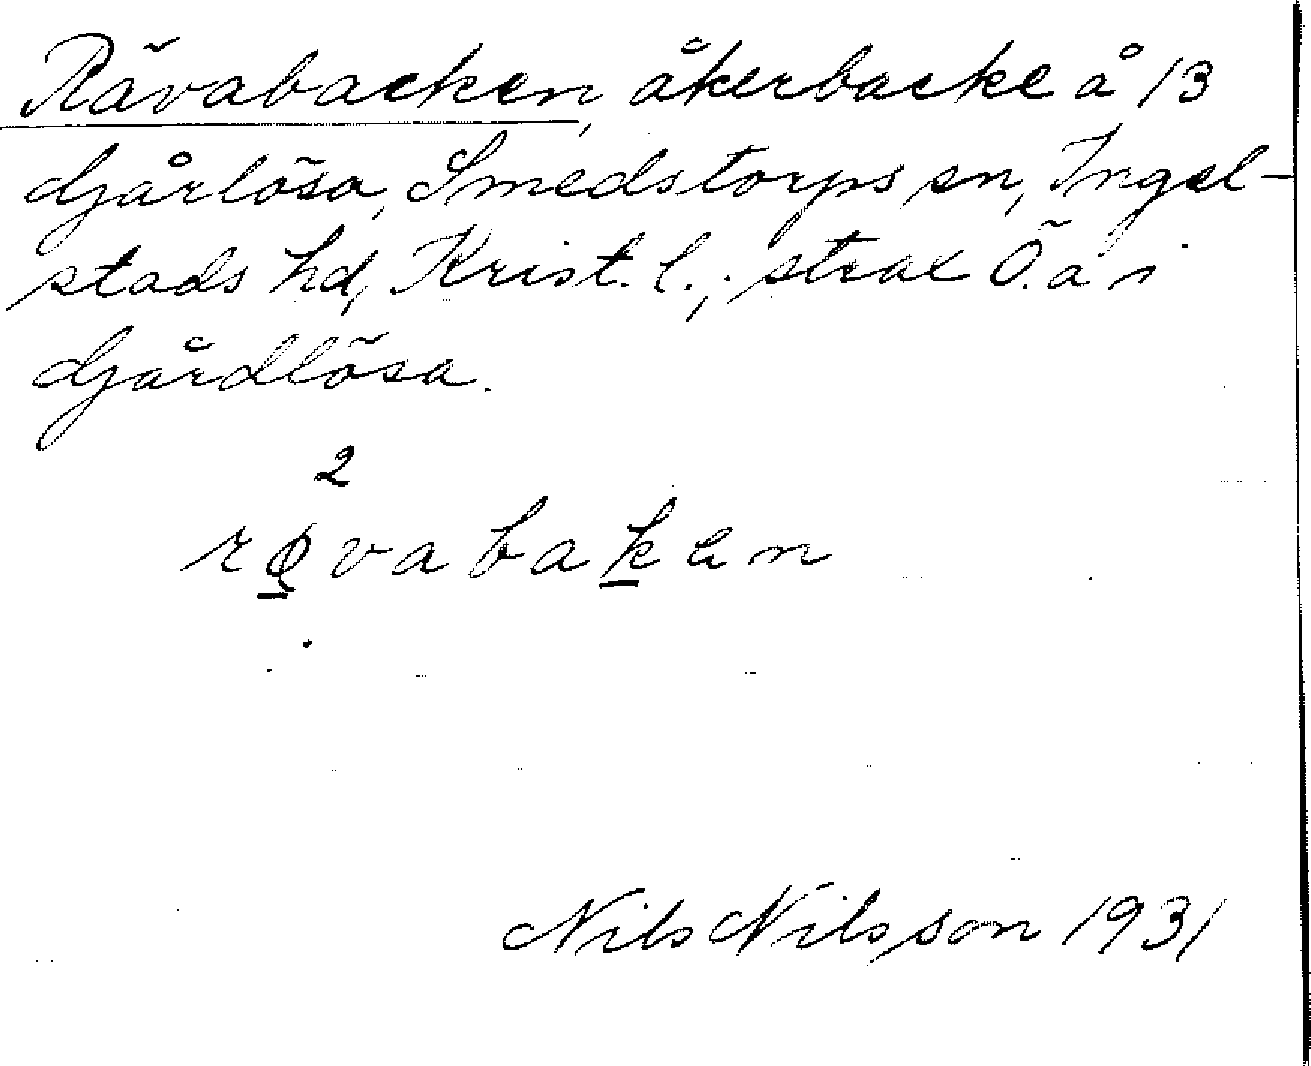 Rävabacken, åkerbacke å 13
Gårlösa, Smedstorps sn, Ingel-
stads hd, Krist. l.; strax Ö. ån i
Gårdlösa.
2
røvabaken
Nils Nilsson 1931